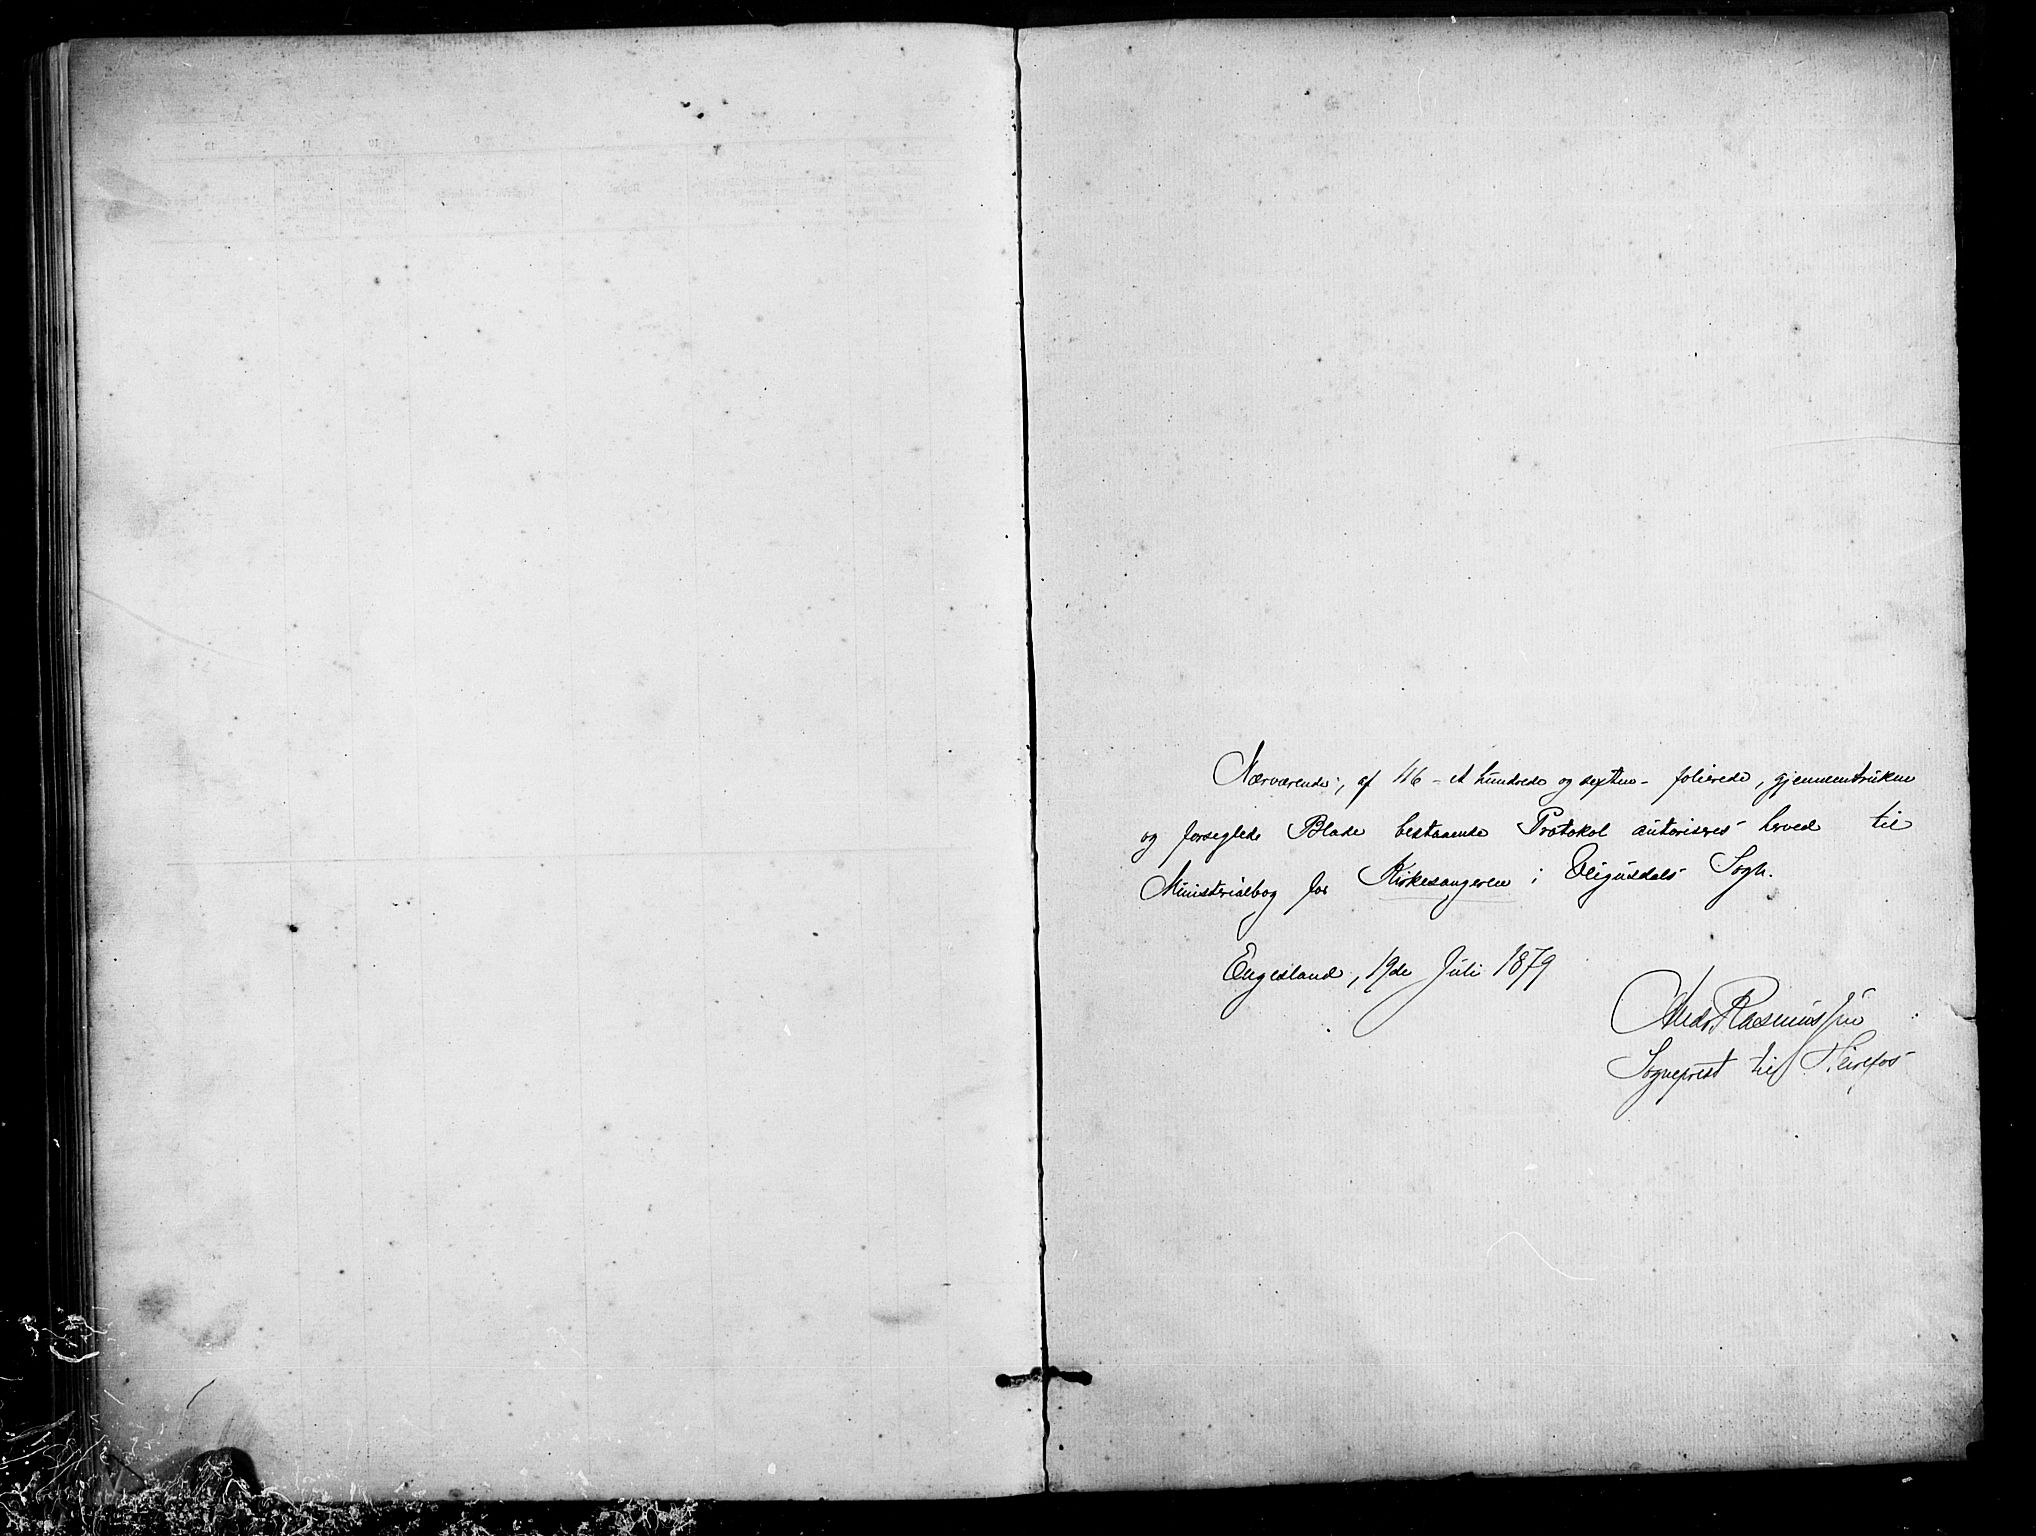 Aar
13 11 10 9 8 7
Nærværende, af 116 - et hundrede og sexten - folierede, gjennemtrukne
og forseglede Blade bestaaende Protokol autoriseres herved til
Ministerialbog for Kirkesangeren i Vegusdals Sogn.
Engesland, 19de Juli 1879
Rasmussen
Sogneprest til Herefos